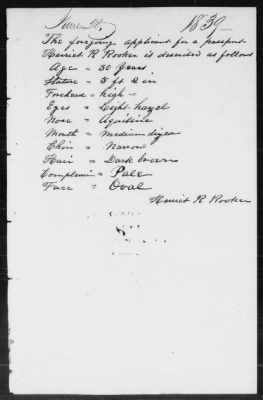 1839
The foregoing applicant for a passport
Harriet R Rooker is described as follows
Age = 50 Years
Stature = 5 ft 2 in
Forehead = high -
Eyes = Light hazel
Nose = Aquiline
Mouth = medium sized
Chin = Narrow
Hair = Dark brown
Complexion = Pale
Face = Oval
Harriet R Rooker